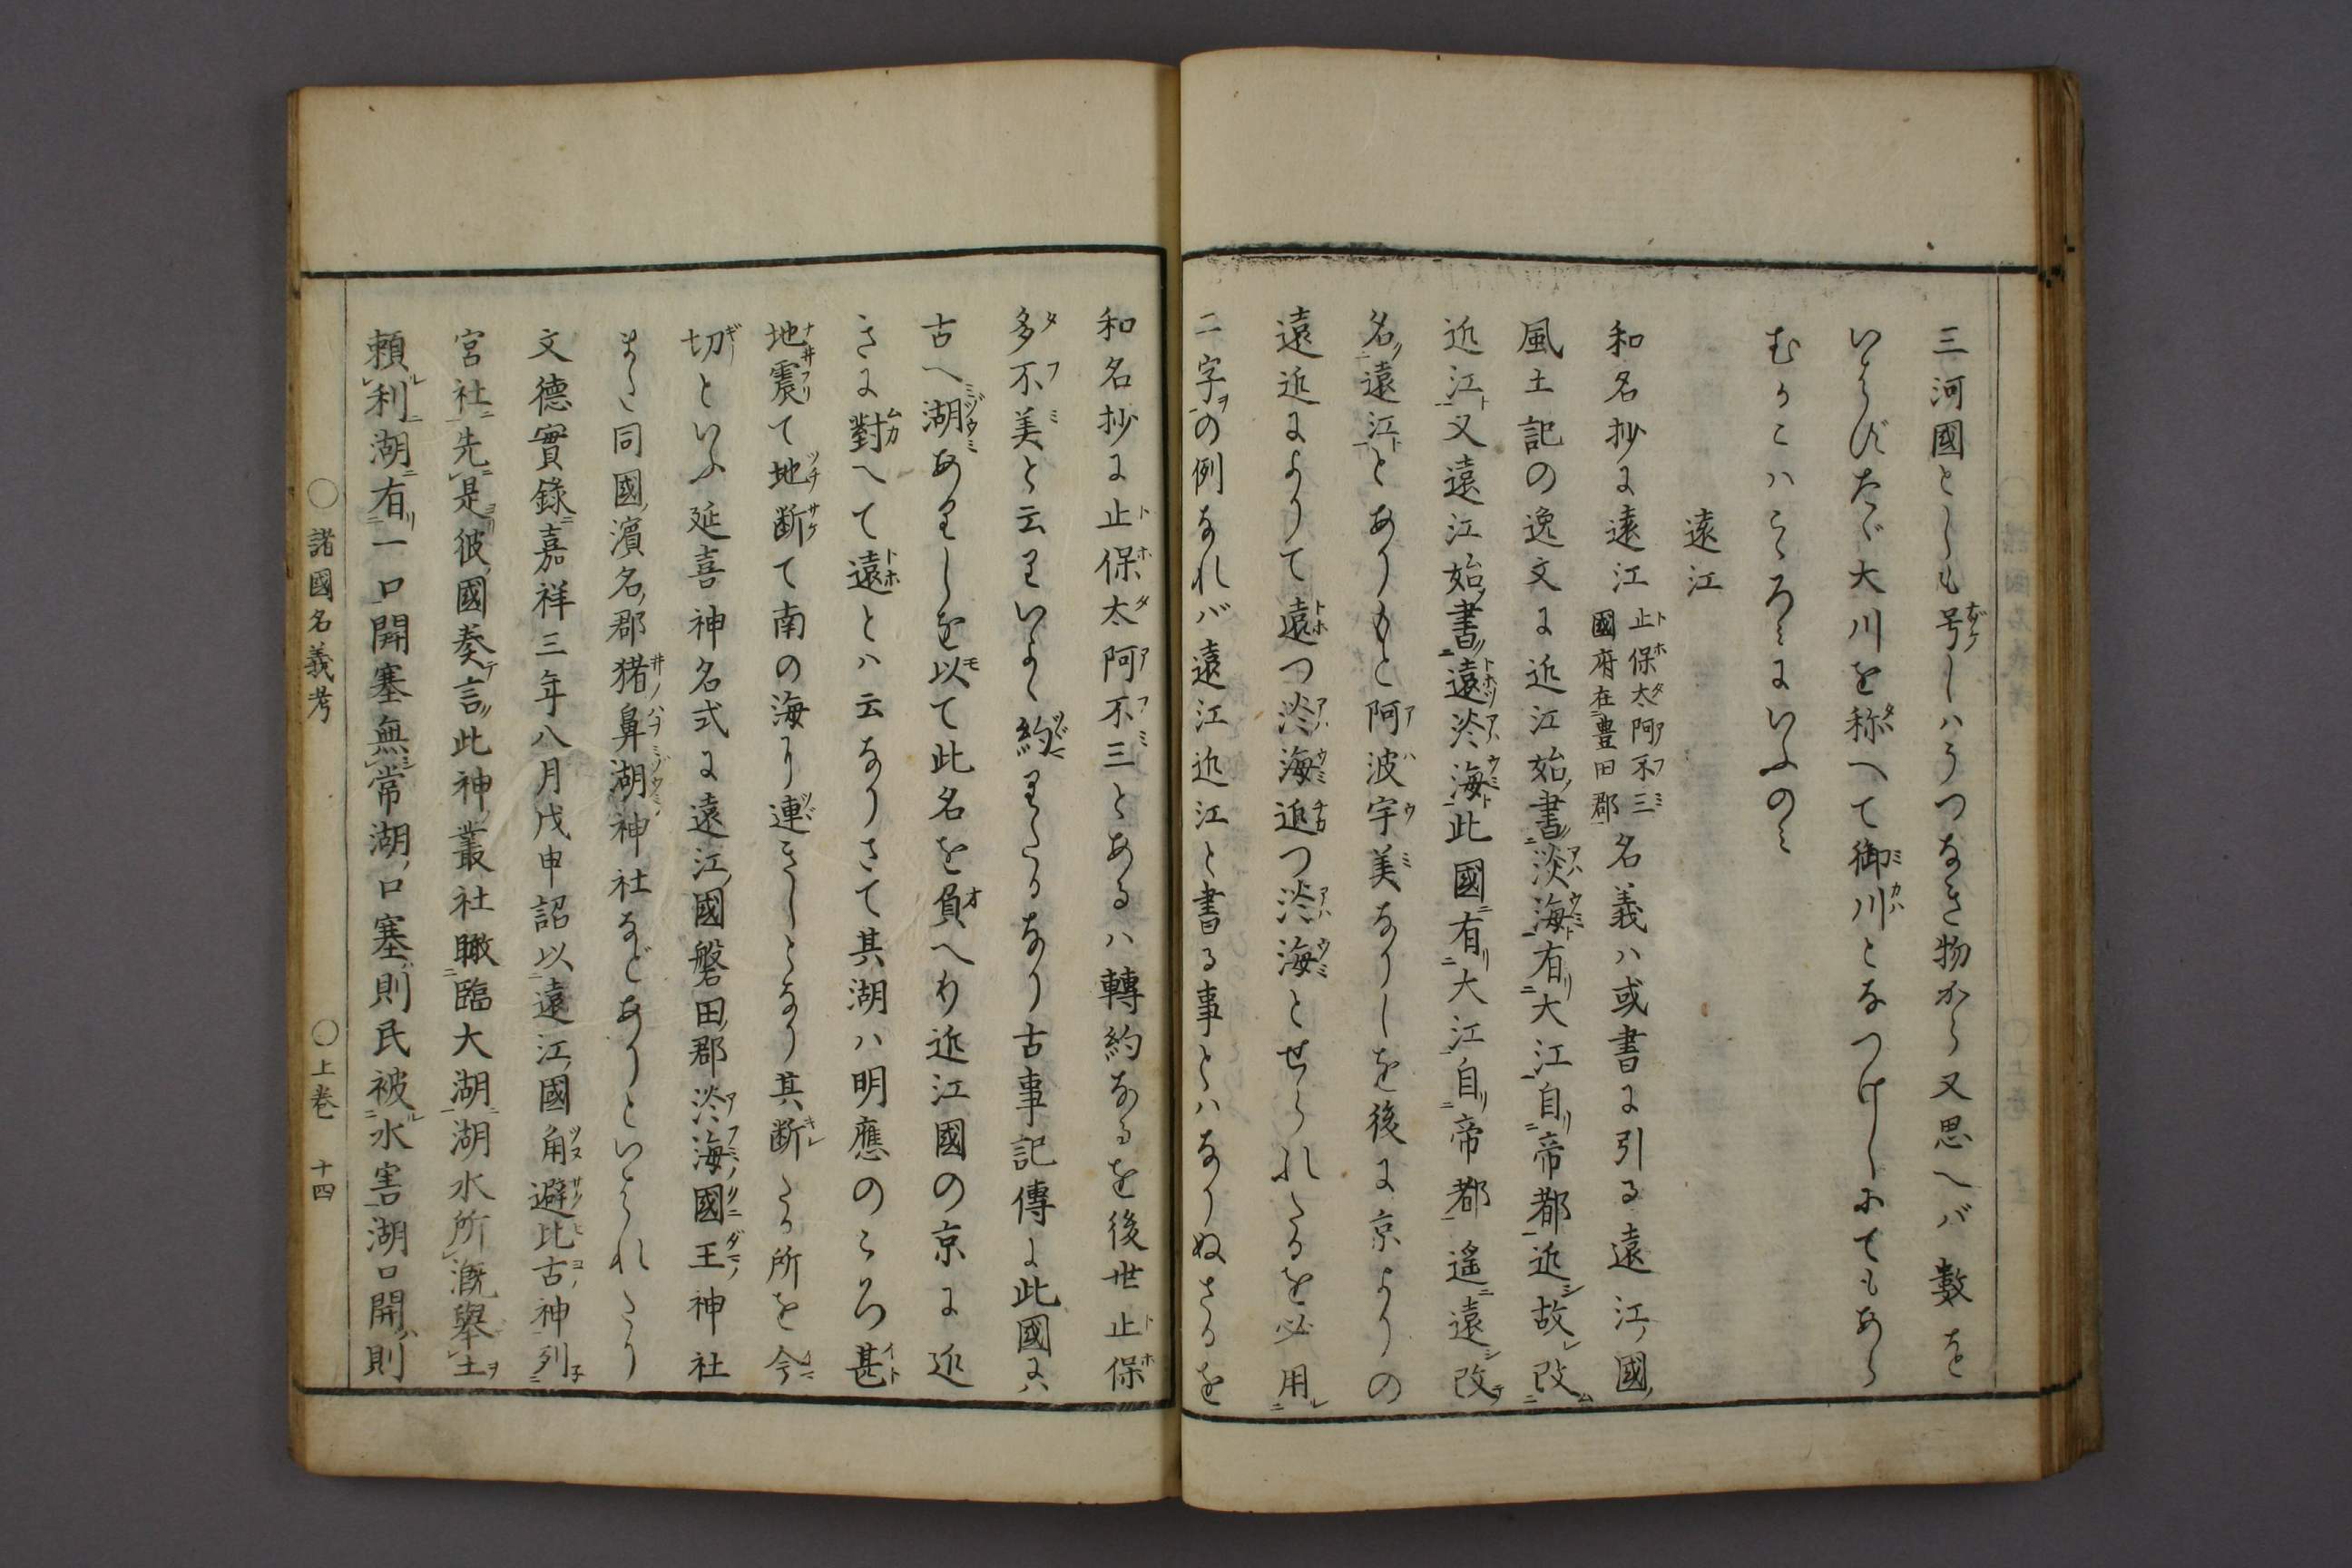 三河國としも号しハうつなき物から又思へバ數を
いとハびたゞ大川を称へて御川となつけしにてもあら
むかこハこゝろミにいふのミ
遠江
和名抄に遠江 止保太阿不三 國府在豊田郡 名義ハ或書に引る遠江國
風土記の逸文に近江始書淡海有大江自帝都近故改
近江又遠江始書遠淡海此國有大江自帝都遥遠改
名遠江とありもと阿波宇美なりしを後に京よりの
遠近によりて遠つ淡海近つ淡海とせられたるを必用
二字の例なれバ遠江近江と書る事とハなりぬさるを
和名抄に止保太阿不三とあるハ轉約なるを後世止保
多不美と云るいよゝ約まりたるなり古事記傳に此國にハ
古へ湖ありしを以て此名を負へり近江國の京に近
きに對へて遠とハ云なりさて其湖ハ明應のころ甚
地震て地断て南の海に連きしとなり其断たる所を今
切といふ延喜神名式に遠江國磐田郡淡海國王神社
また同國濱名郡猪鼻湖神社などありといはれたり
文德實錄嘉祥三年八月戊申詔以遠江國角避比古神列
宮社先是彼國奏言此神叢社瞰臨大湖湖水所漑擧土
頼利湖有一口開塞無常湖口塞則民被水害湖口開則
○諸國名義考 ○上巻 十四